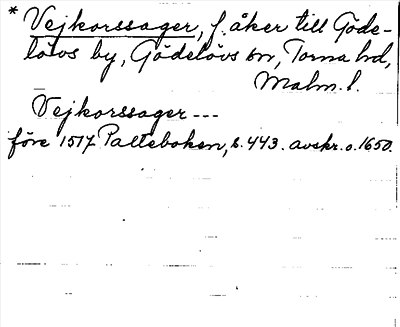 * Vejkorssager, f. åker till Göde-
lövs by, Gödelövs sn, Torna hd,
Malm. l.
Vejkorssager ---
före 1517 Palteboken, s. 443. avskr. o. 1650.